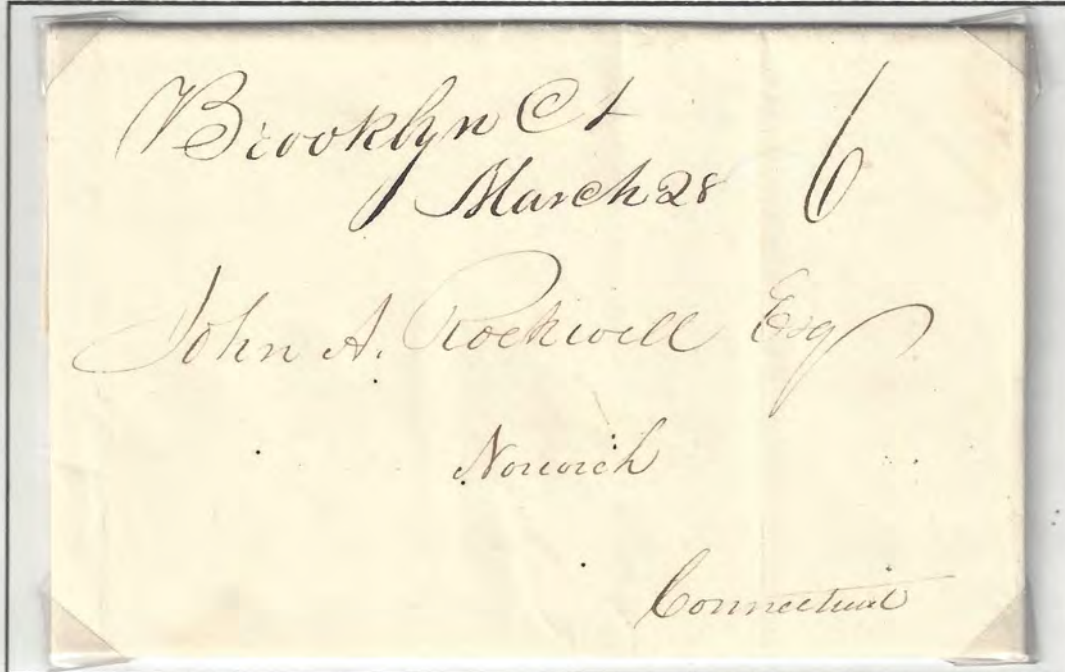 Brooklyn Ct
March 28 6
John A. Rockwell Esq
Norwich
Connecticut